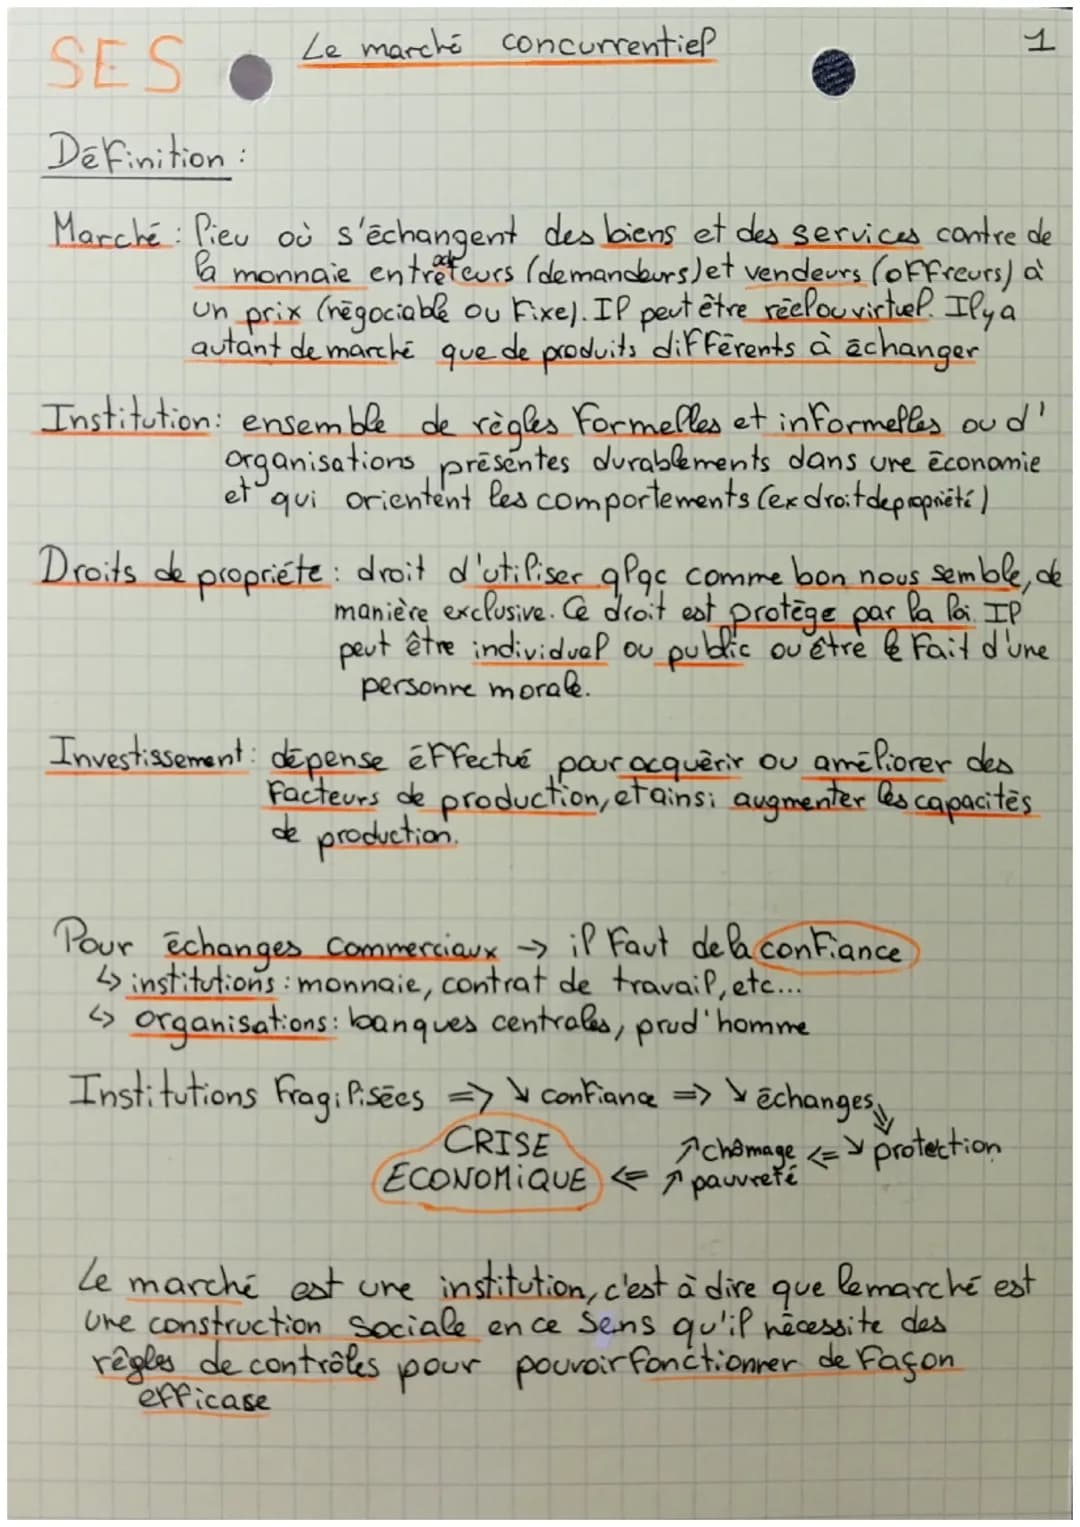 SES
Le marché concurrentiel
1
Définition :
Marché : lieu où s'échangent des biens et des services contre de
la monnaie entre acheteurs (demandeurs) et vendeurs (offreurs) à
un prix (négociable ou fixe). Il peut être réel ou virtuel. Il y a
autant de marché que de produits différents à échanger
Institution : ensemble de règles formelles et informelles ou d'
organisations présentes durablements dans une économie
et qui orientent les comportements (ex droit de propriété)
Droits de propriéte : droit d'utiliser qlqc comme bon nous semble, de
manière exclusive. Ce droit est protége par la loi. Il
peut être individuel ou public ou être le fait d'une
personne morale.
Investissement : dépense éffectué pour acquérir ou améliorer des
facteurs de production, et ainsi augmenter les capacités
de production.
Pour échanges commerciaux → il faut de la confiance
↳ institutions : monnaie, contrat de travail, etc...
↳ organisations : banques centrales, prud'homme
Institutions fragilisées => ↘ confiance => ↘ échanges
CRISE
ECONOMIQUE <= ↗ chômage ↗ pauvreté <= ↘ protection
Le marché est une institution, c'est à dire que le marché est
une construction sociale en ce sens qu'il nécessite des
règles de contrôles pour pouvoir fonctionner de façon
efficase